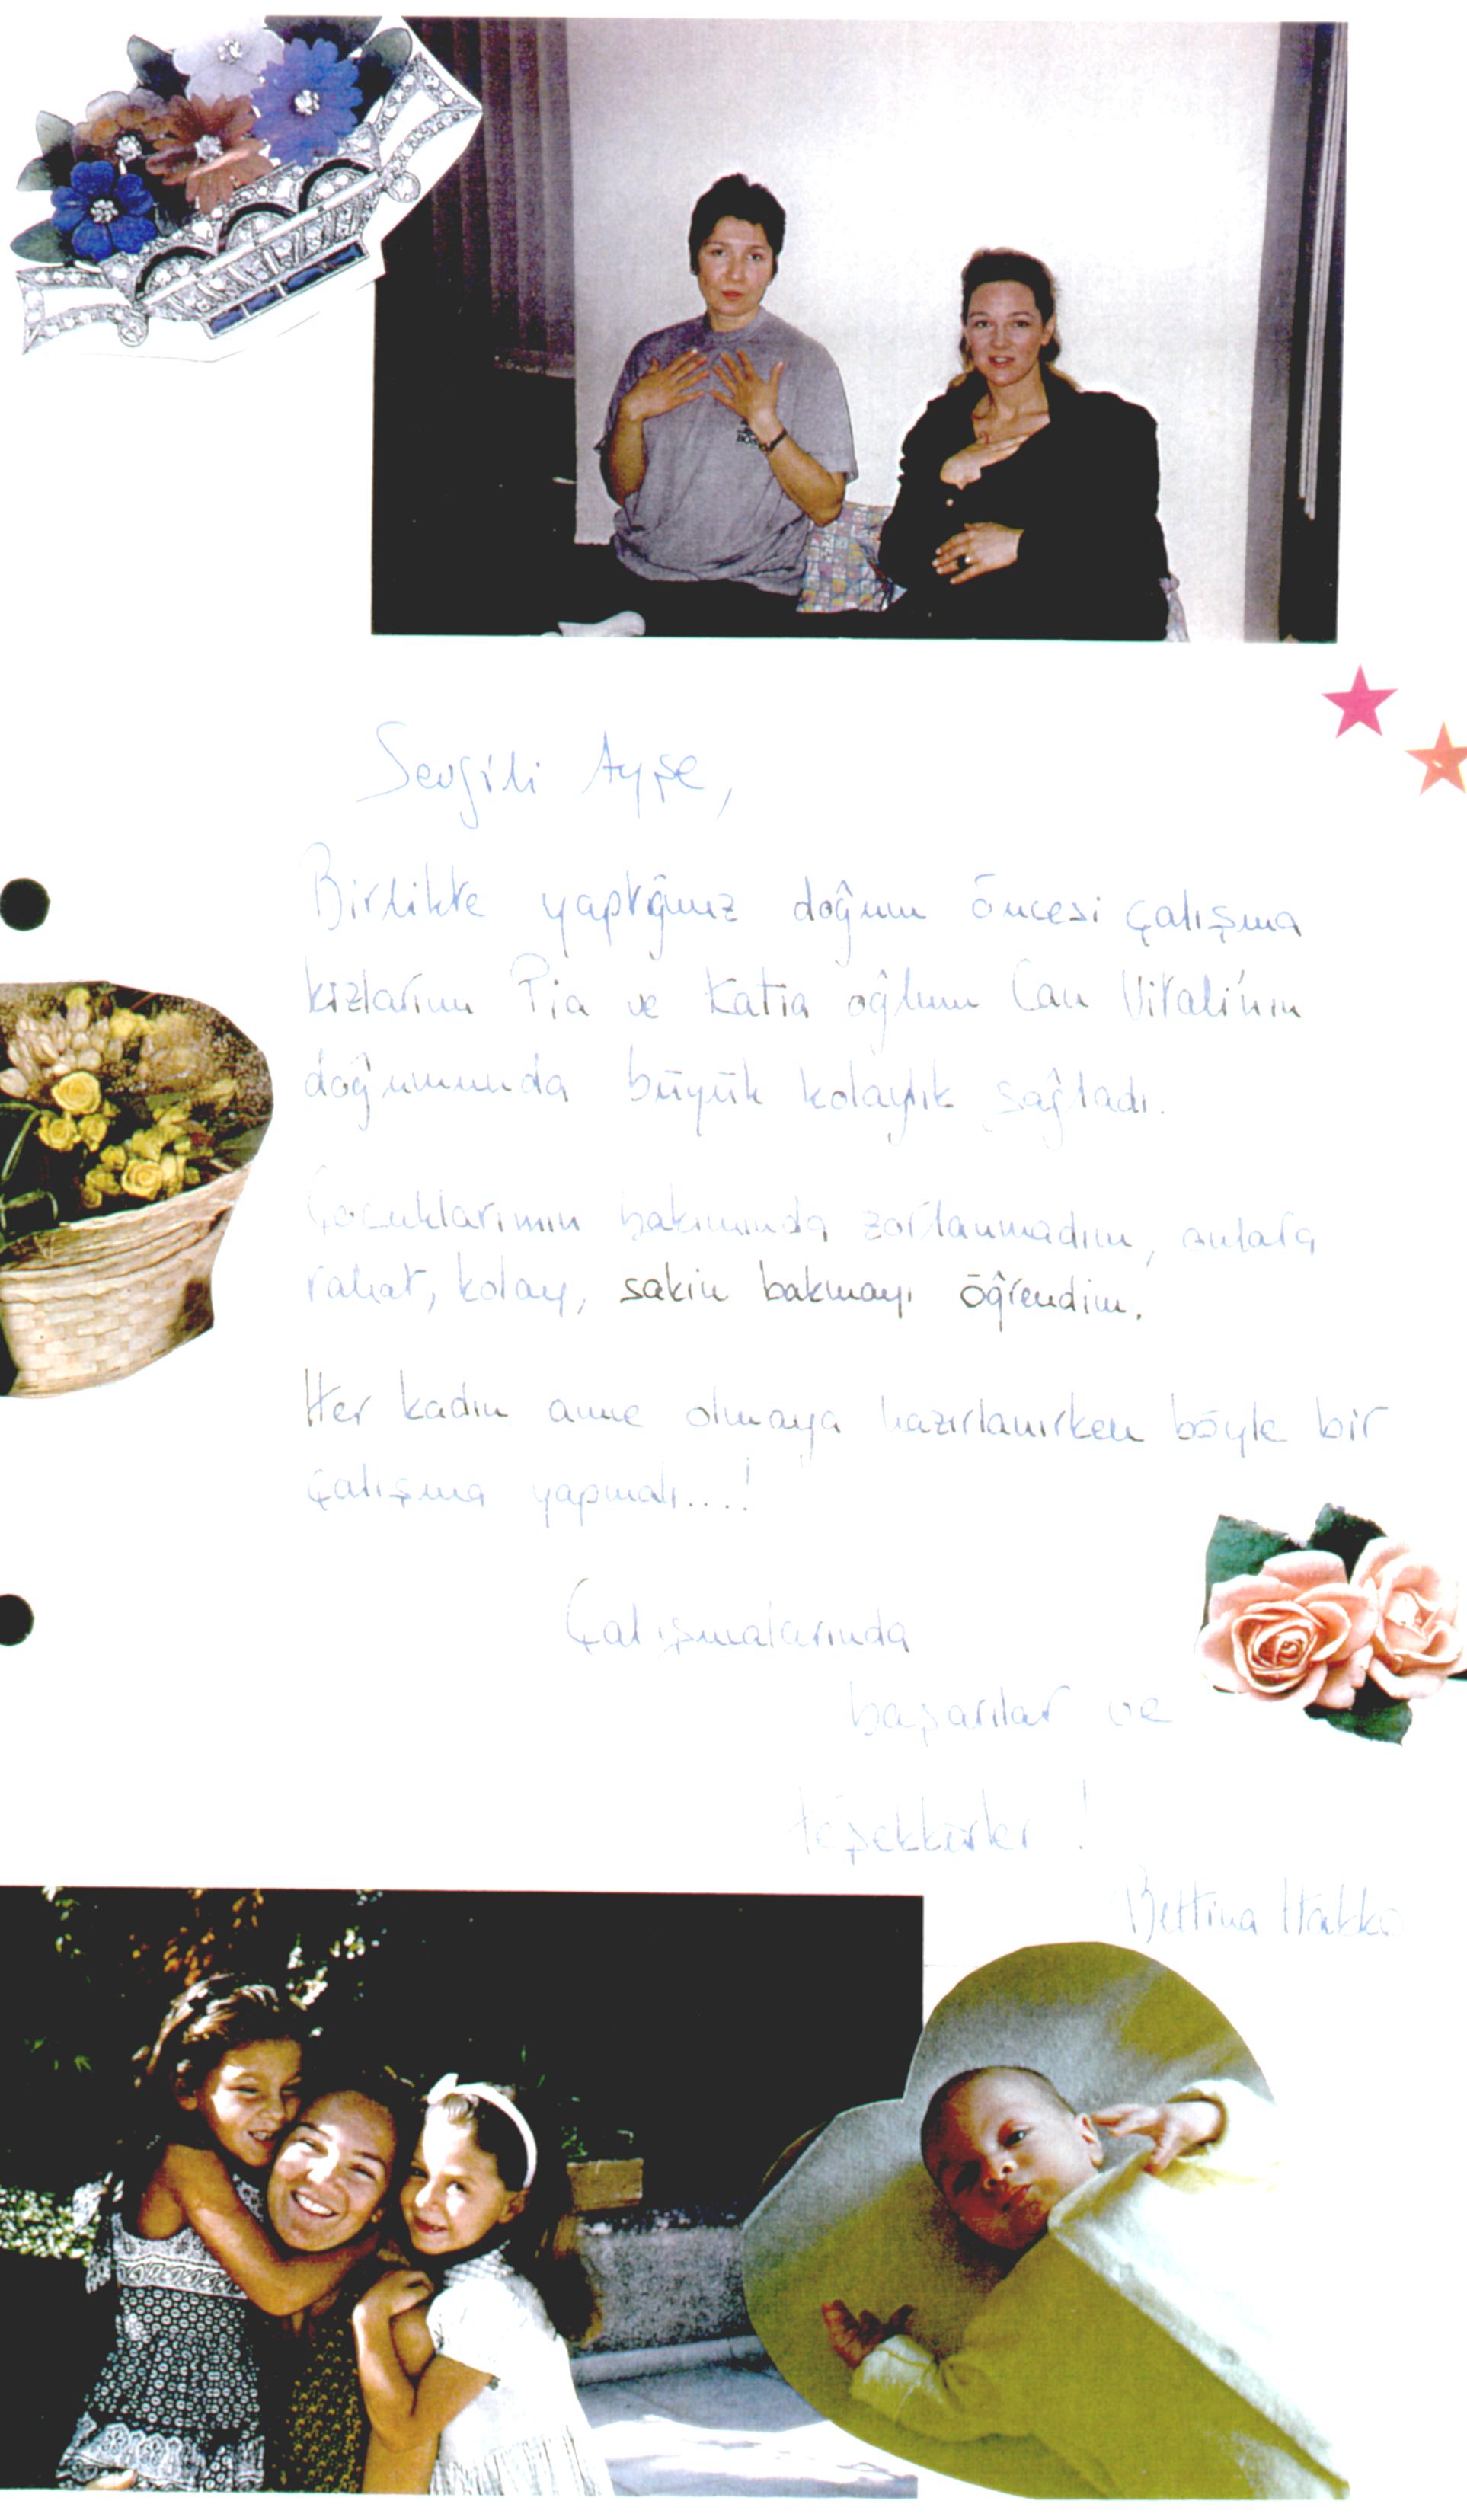 Sevgili Ayşe,
Birlikte yaptığımız doğum öncesi çalışma
kızlarım Pia ve Katia oğlum Can Vitali'nin
doğumunda büyük kolaylık sağladı.
Çocuklarımın bakımında zorlanmadım, onlara
rahat, kolay, sakin bakmayı öğrendim.
Her kadın anne olmaya hazırlanırken böyle bir
çalışma yapmalı....!
Çalışmalarında
başarılar ve
teşekkürler!
Bettina Hakko